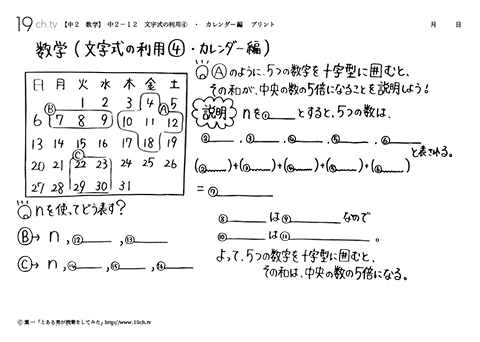 19ch.tv 【中2 数学】 中2－12 文字式の利用④ ・ カレンダー編 プリント 月 日
数学(文字式の利用④・カレンダー編)
日 月 火 水 木 金 土
1 2 3 4 5
6 7 8 9 10 11 12
13 14 15 16 17 18 19
20 21 22 23 24 25 26
27 28 29 30 31
Ⓐ
Ⓑ
Ⓒ
Ⓐのように、5つの数字を十字型に囲むと、
その和が、中央の数の5倍になることを説明しよう!
説明 nを①とすると、5つの数は、
②, ③, ④, ⑤, ⑥
と表される。
(②)+(③)+(④)+(⑤)+(⑥)
=⑦
⑧は⑨なので
⑩は⑪。
よって、5つの数字を十字型に囲むと、
その和は、中央の数の5倍になる。
nを使ってどう表す?
Ⓑ→ n, ⑫, ⑬
Ⓒ→ n, ⑭, ⑮, ⑯
Ⓒ葉一「とある男が授業をしてみた」http://www.19ch.tv